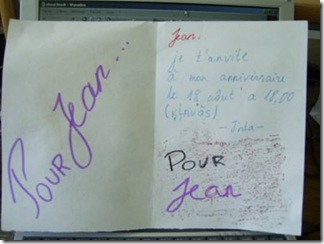 Pour Jean...
Jean,
je t'anvite
à mon anniversaire
le 18 août à 18.00
(KLAVAS)
-Inta-
POUR
Jean